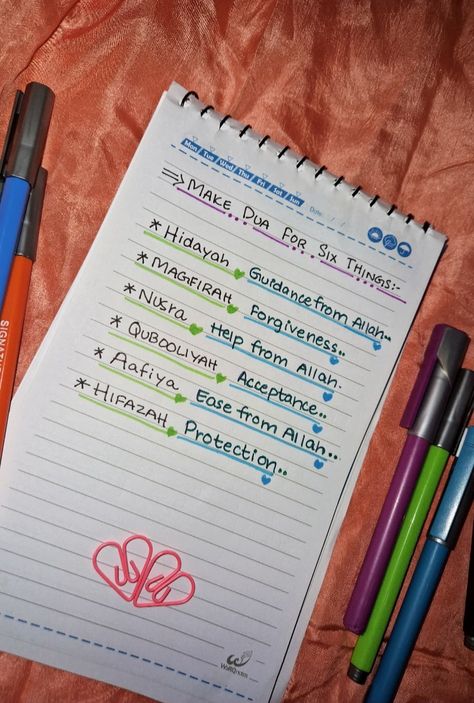 Mon / Tue / Wed / Thu / Fri / Sat / Sun
Date: / /
⇒ MAKE DUA FOR SIX THINGS:-
* Hidayah Guidance from Allah..
* MAGFIRAH Forgiveness..
* Nusra Help from Allah.
* QUBOOLIYAH Acceptance..
* Aafiya Ease from Allah..
* HIFAZAH Protection..
SIGNATURE